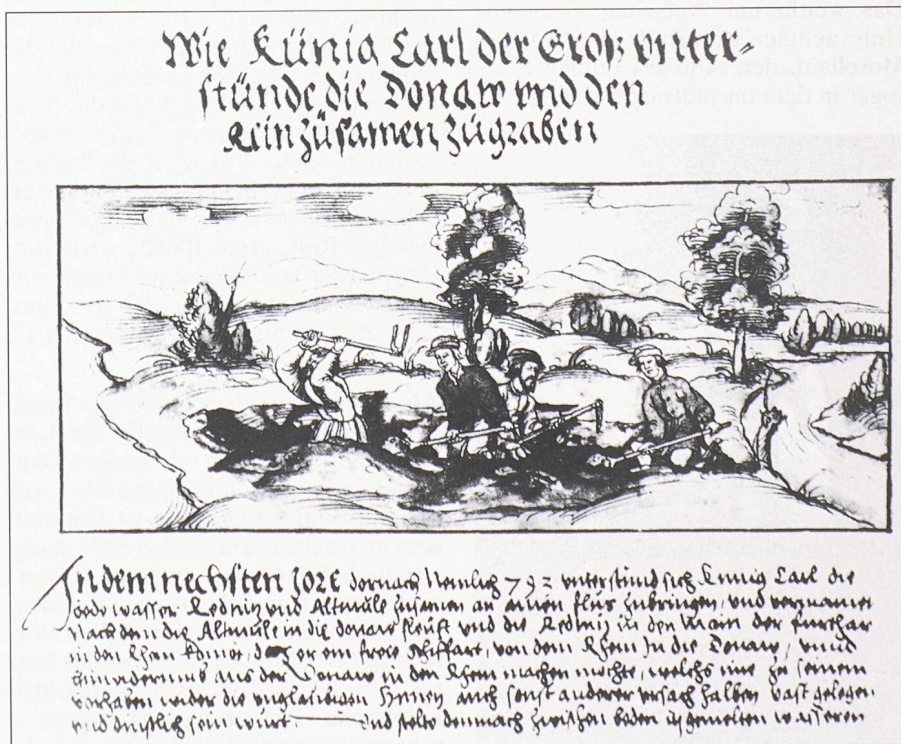 Wie Künig Carl der Groß vnter-
stünde die Donaw vnd den
Rein zůsamen zůgraben
In dem nechsten jore dornach Nemlich 792 vnterstund sich Kunig Carl die
wasser Rednitz vnd Altmüle zusamen an ainen flus zubringen, vnd vermainet
Nachdem die Altmüle in die Donaw fleust vnd die Rednitz in den Main, der furthar
in den Rhein kombt, das er ein freie schiffart, von dem Rhein In die Donaw, vnnd
hinwiderumb aus der Donaw in den Rhein machen mochte, welchs ime zu seinem
vorhaben wider die vnglaubigen Hunen auch sonst anderer vrsach halben vast gelegen
vnd dinstlich sein wurt vnd zwischen beden wasseren